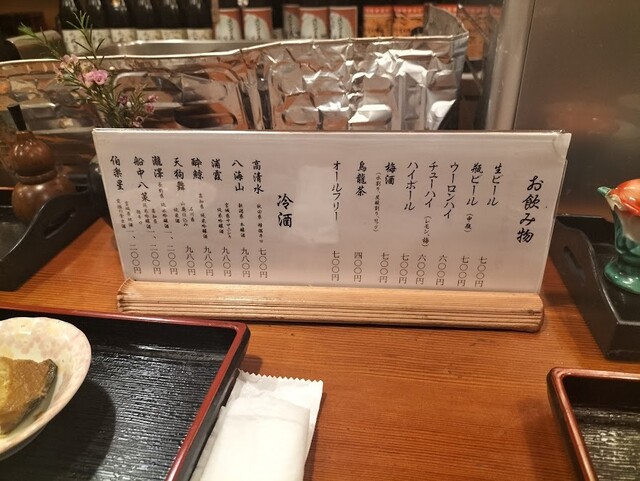 お飲み物
生ビール 七〇〇円
瓶ビール（中瓶） 七〇〇円
ウーロンハイ 六〇〇円
チューハイ（レモン・梅） 六〇〇円
ハイボール 七〇〇円
梅酒 七〇〇円
烏龍茶 四〇〇円
オールフリー 七〇〇円
冷酒
高清水 七〇〇円
八海山 新潟県 九八〇円
浦霞 宮城県 九八〇円
酔鯨 高知県 純米吟醸酒 九八〇円
天狗舞 石川県 九八〇円
瀧澤 一、二〇〇円
船中八策 一、二〇〇円
伯楽星 宮城県 一、二〇〇円